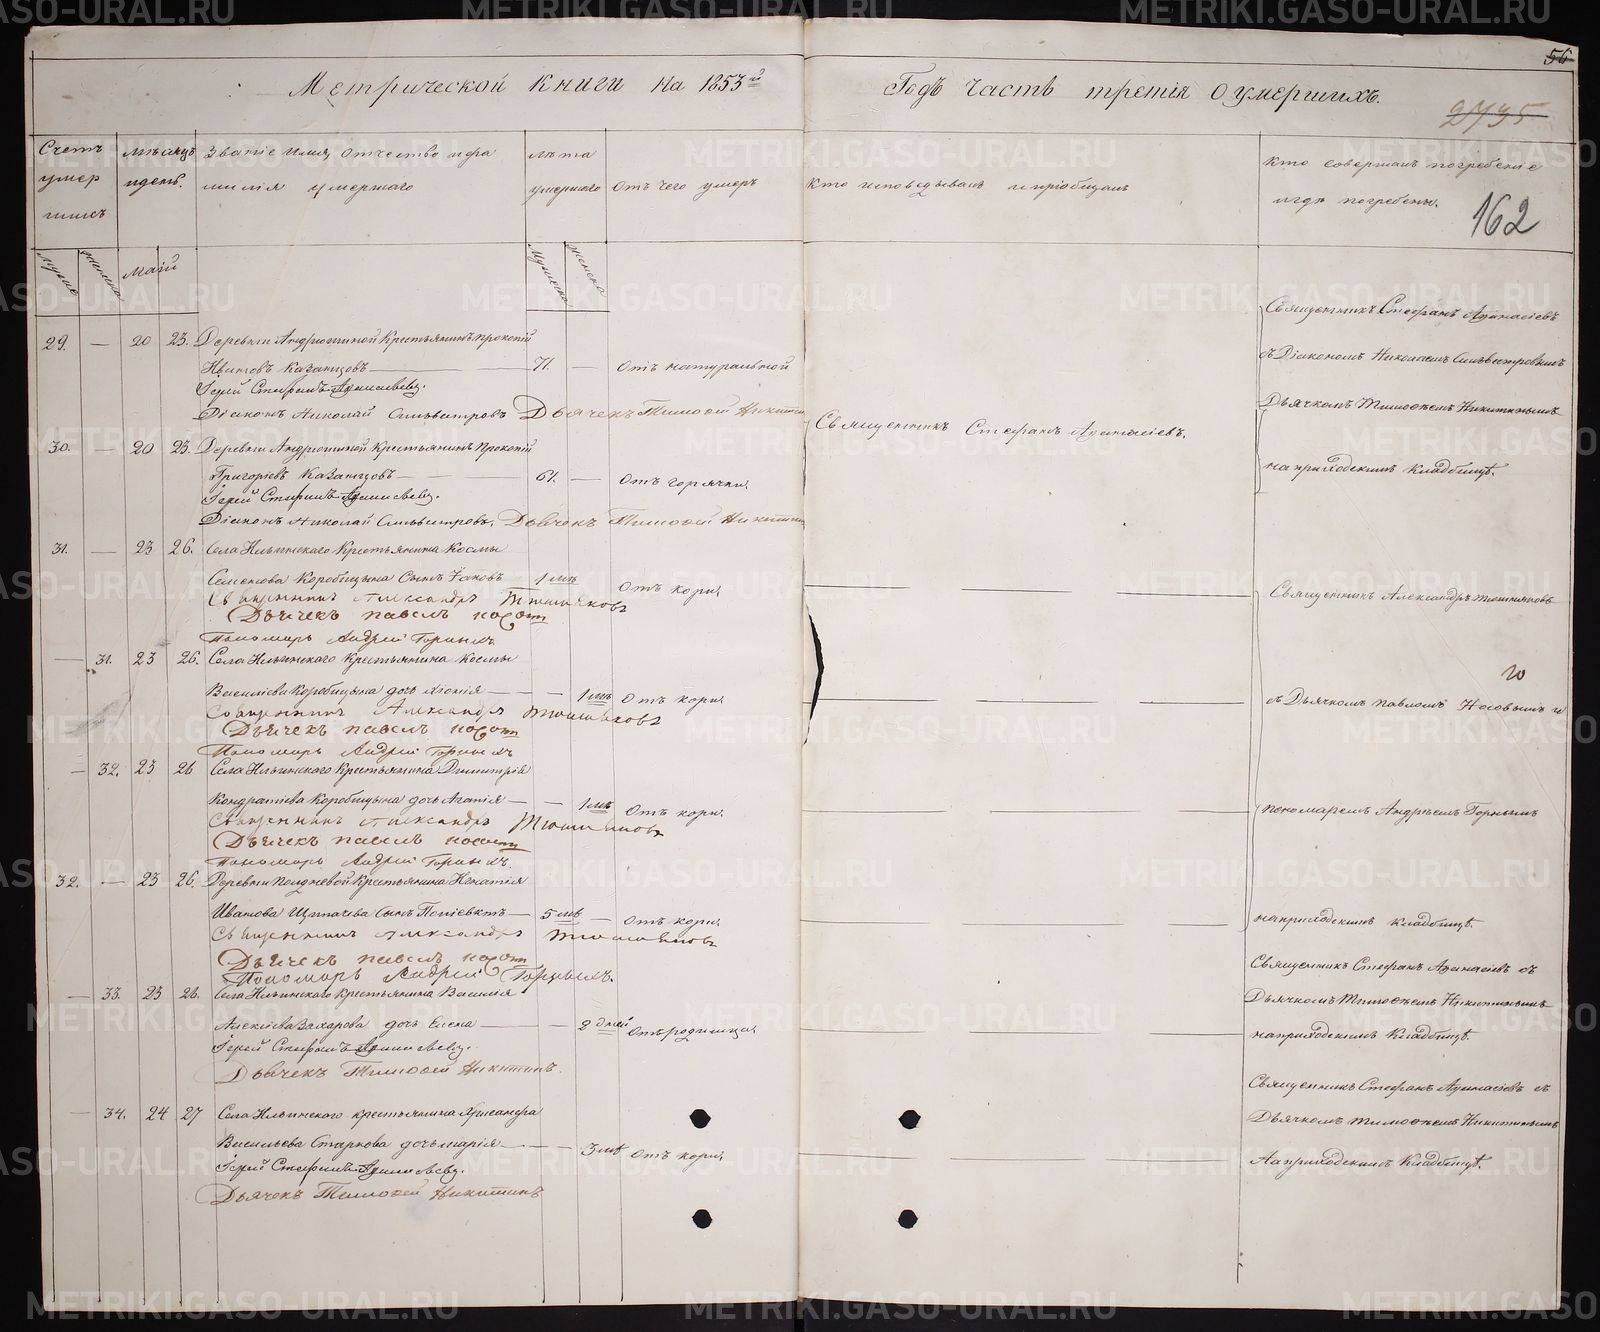 56
Метрической книги на 1853й Годъ часть третія о умершихъ.
2735
162
Счетъ умер шихъ
мѣсяцъ и день.
Званіе имя, отчество и фа
милія умершаго
лѣта
умершаго
отъ чего умеръ
кто исповѣдывалъ и пріобщалъ
кто совершалъ погребеніе
и гдѣ погребены.
мужие
женска
Маій
Мужеска
женска
29. — 20 23. Деревни Андрюшиной Крестьянинъ Прокопій
Ивановъ Казанцовъ — 71. — отъ натуральной
Іерей Стефанъ Афанасьевъ.
Діаконъ Николай Сильвестровъ Дьячекъ Тимофей Никитин
Священникъ Стефанъ Афанасіевъ
съ Діакономъ Николаемъ Сильвестровымъ
Дьячкомъ Тимофеемъ Никитинымъ
на приходскомъ кладбищѣ.
Священникъ Стефанъ Афанасіевъ.
30. — 20 23. Деревни Андрюшиной Крестьянинъ Прокопій
Григоріевъ Казанцовъ — 61. — отъ горячки.
Іерей Стефанъ Афанасьевъ.
Діаконъ Николай Сильвестровъ. Дьячекъ Тимофей Никитин
31. — 23 26. Села Ильинскаго Крестьянина Космы
Семенова Коробицына сынъ Іаковъ 1 лѣ отъ кори.
Священникъ Александръ
Дьячекъ павелъ носовъ
Пономарь Андрей Горныхъ
Священникъ Александръ
— 31. 23 26. Села Ильинскаго Крестьянина Космы
Василіева Коробицына дочь — — 1 лѣ отъ кори.
Священникъ Александръ
Дьячекъ павелъ носовъ
Пономарь Андрей Горныхъ
съ Дьячкомъ павломъ Носовымъ и
— 32. 23 26 Села Ильинскаго Крестьянина Димитрія
Кондратіева Коробицына дочь Агапія — — 1 лѣ отъ кори.
Священникъ Александръ
Дьячекъ павелъ носовъ
Пономарь Андрей Горныхъ.
пономаремъ Андреемъ Горнымъ
32. — 23 26. Деревни Полдневой Крестьянина Игнатія
Иванова Щипачева сынъ — 5 лѣ — отъ кори.
Священникъ Александръ
Дьячекъ павелъ носовъ
Пономарь Андрей Горныхъ.
на приходскомъ кладбищѣ.
— 33. 23 26. Села Ильинскаго Крестьянина Василія
Алексіева Захарова дочь Елена — — 2 дней отъ родимца.
Іерей Стефанъ Афанасьевъ.
Дьячекъ Тимофей Никитинъ.
Священникъ Стефанъ Афанасіевъ съ
Дьячкомъ Тимофеемъ Никитинымъ
на приходскомъ Кладбищѣ.
— 34. 24 27 Села Ильинскаго крестьянина Александра
Васильева Старкова дочь марія — — 3 лѣ отъ кори.
Іерей Стефанъ Афанасьевъ.
Дьячекъ Тимофей Никитинъ
Священникъ Стефанъ Афанасіевъ съ
Дьячкомъ Тимофеемъ Никитинымъ
На приходскомъ Кладбищѣ.
METRIKI.GASO-URAL.RU